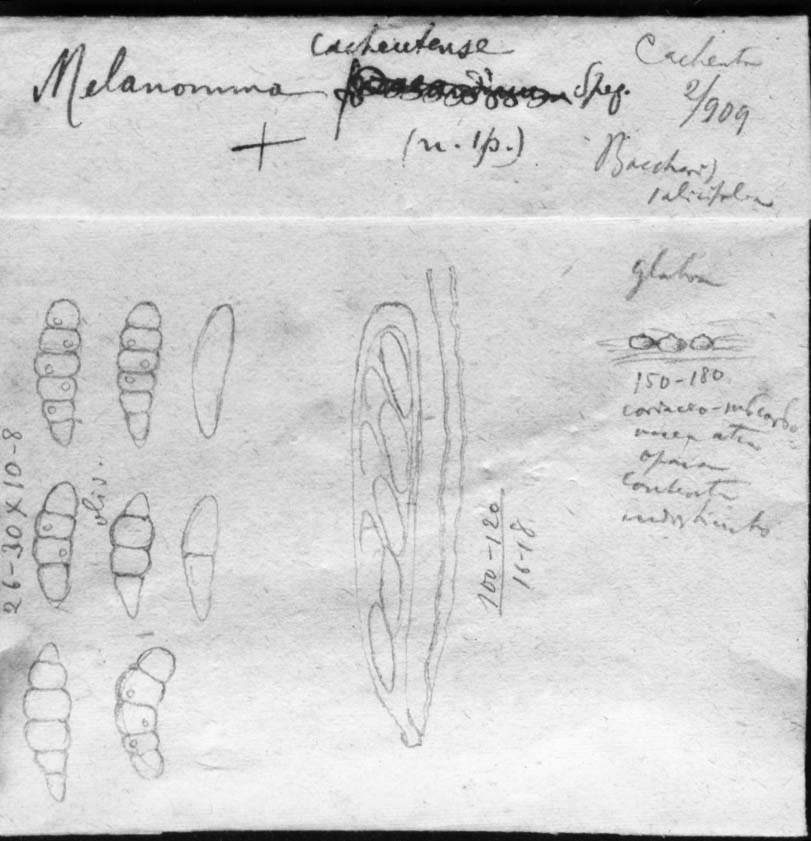 cacheutense
Melanomma Speg.
+ (n. sp.)
Cacheuta
2/909
Baccharis
salicifolia
glabra
150-180
coriaceo-subcarbo
nacea atra
opaca
contextu
indistincto
26-30 x 10-8
oliv.
100-120
16-18